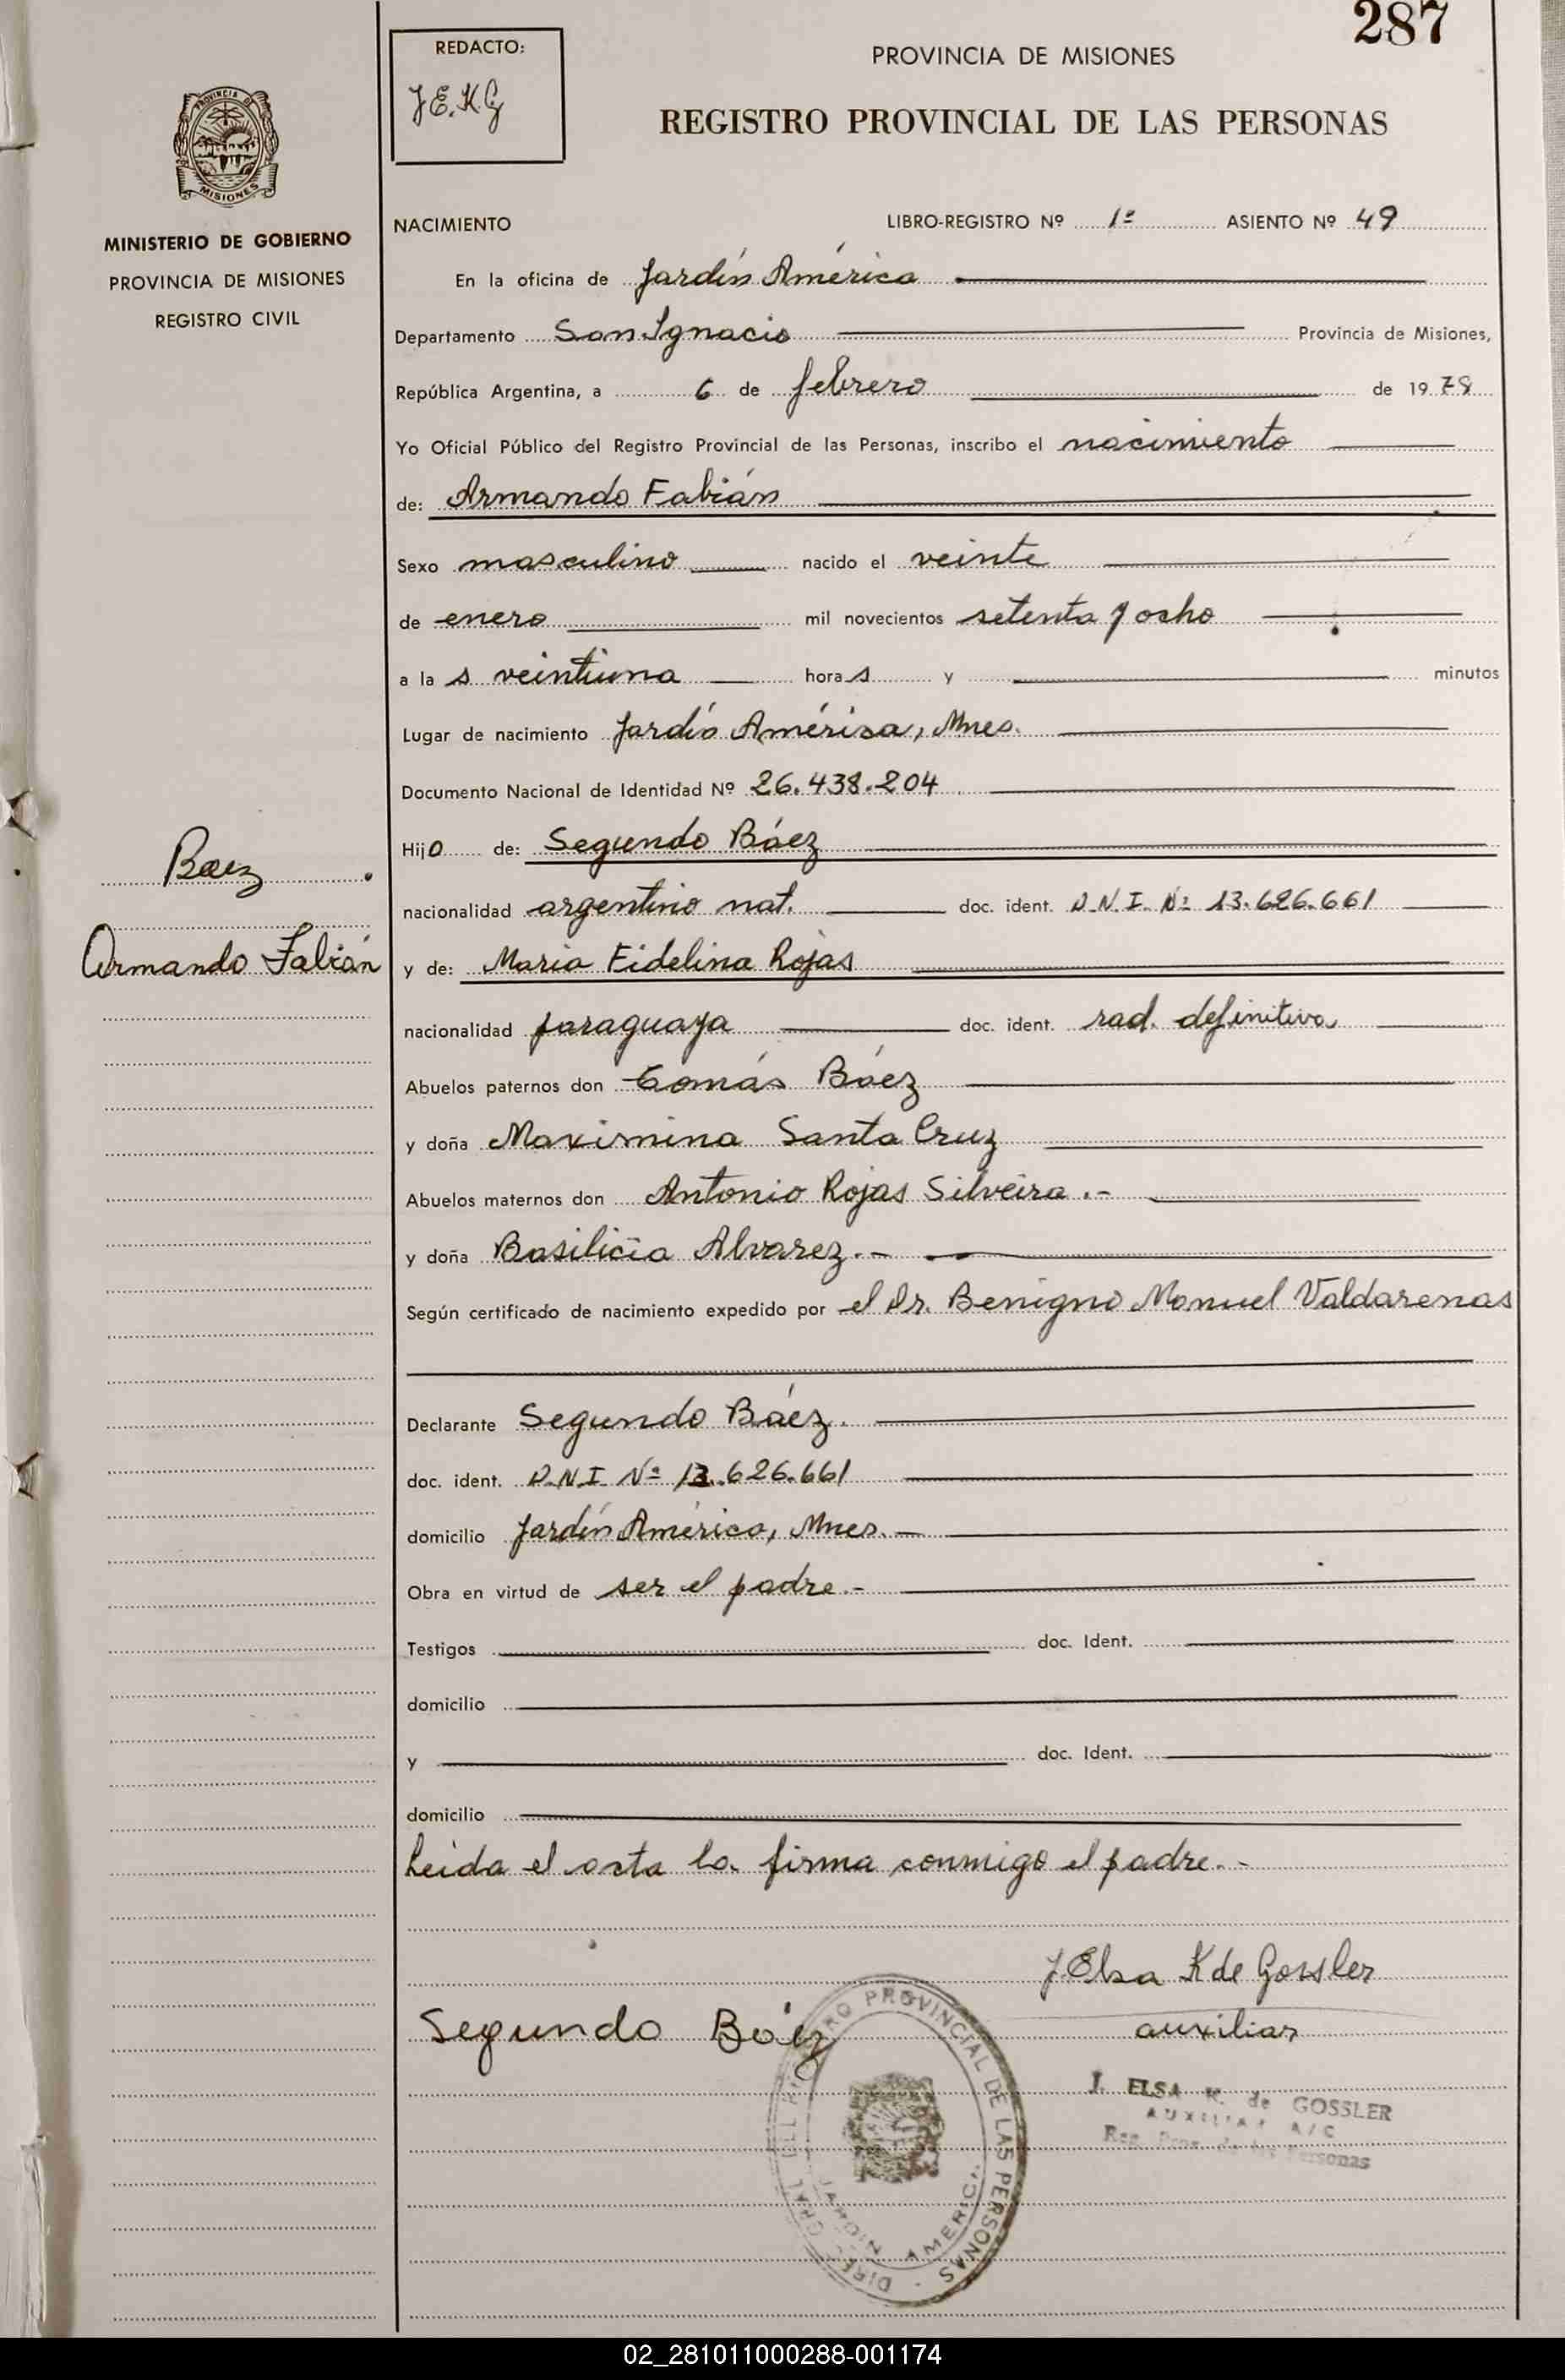 287
REDACTO:
J E. K. G
PROVINCIA DE MISIONES
REGISTRO PROVINCIAL DE LAS PERSONAS
PROVINCIA DE
MISIONES
MINISTERIO DE GOBIERNO
PROVINCIA DE MISIONES
REGISTRO CIVIL
NACIMIENTO LIBRO-REGISTRO Nº 1º ASIENTO Nº 49
En la oficina de Jardín América
Departamento San Ignacio Provincia de Misiones,
República Argentina, a 6 de febrero de 1978
Yo Oficial Público del Registro Provincial de las Personas, inscribo el nacimiento
de: Armando Fabián
Sexo masculino nacido el veinte
de enero mil novecientos setenta y ocho
a la s veintiuna hora s y minutos
Lugar de nacimiento Jardín América, Mnes.
Documento Nacional de Identidad Nº 26.438.204
Hijo de: Segundo Báez
Baez
nacionalidad argentino nat. doc. ident. D.N.I. Nº 13.626.661
Armando Fabián
y de: Maria Fidelina Rojas
nacionalidad paraguaya doc. ident. rad. definitiva
Abuelos paternos don Tomás Báez
y doña Maximina Santa Cruz
Abuelos maternos don Antonio Rojas Silveira.-
y doña Basilicia Alvarez.-
Según certificado de nacimiento expedido por el Dr. Benigno Manuel Valdarenas
Declarante Segundo Báez.
doc. ident. D.N.I Nº 13.626.661
domicilio Jardín América, Mnes.-
Obra en virtud de ser el padre.-
Testigos doc. Ident.
domicilio
y doc. Ident.
domicilio
Leída el acta la firma conmigo el padre.-
J Elsa K de Gossler
Segundo Báez auxiliar
J. ELSA K. de GOSSLER
AUXILIAR A/C
Reg. Prov. de las Personas
DIREC. GRAL. DEL REGISTRO PROVINCIAL DE LAS PERSONAS
JARDIN AMERICA
02_281011000288-001174